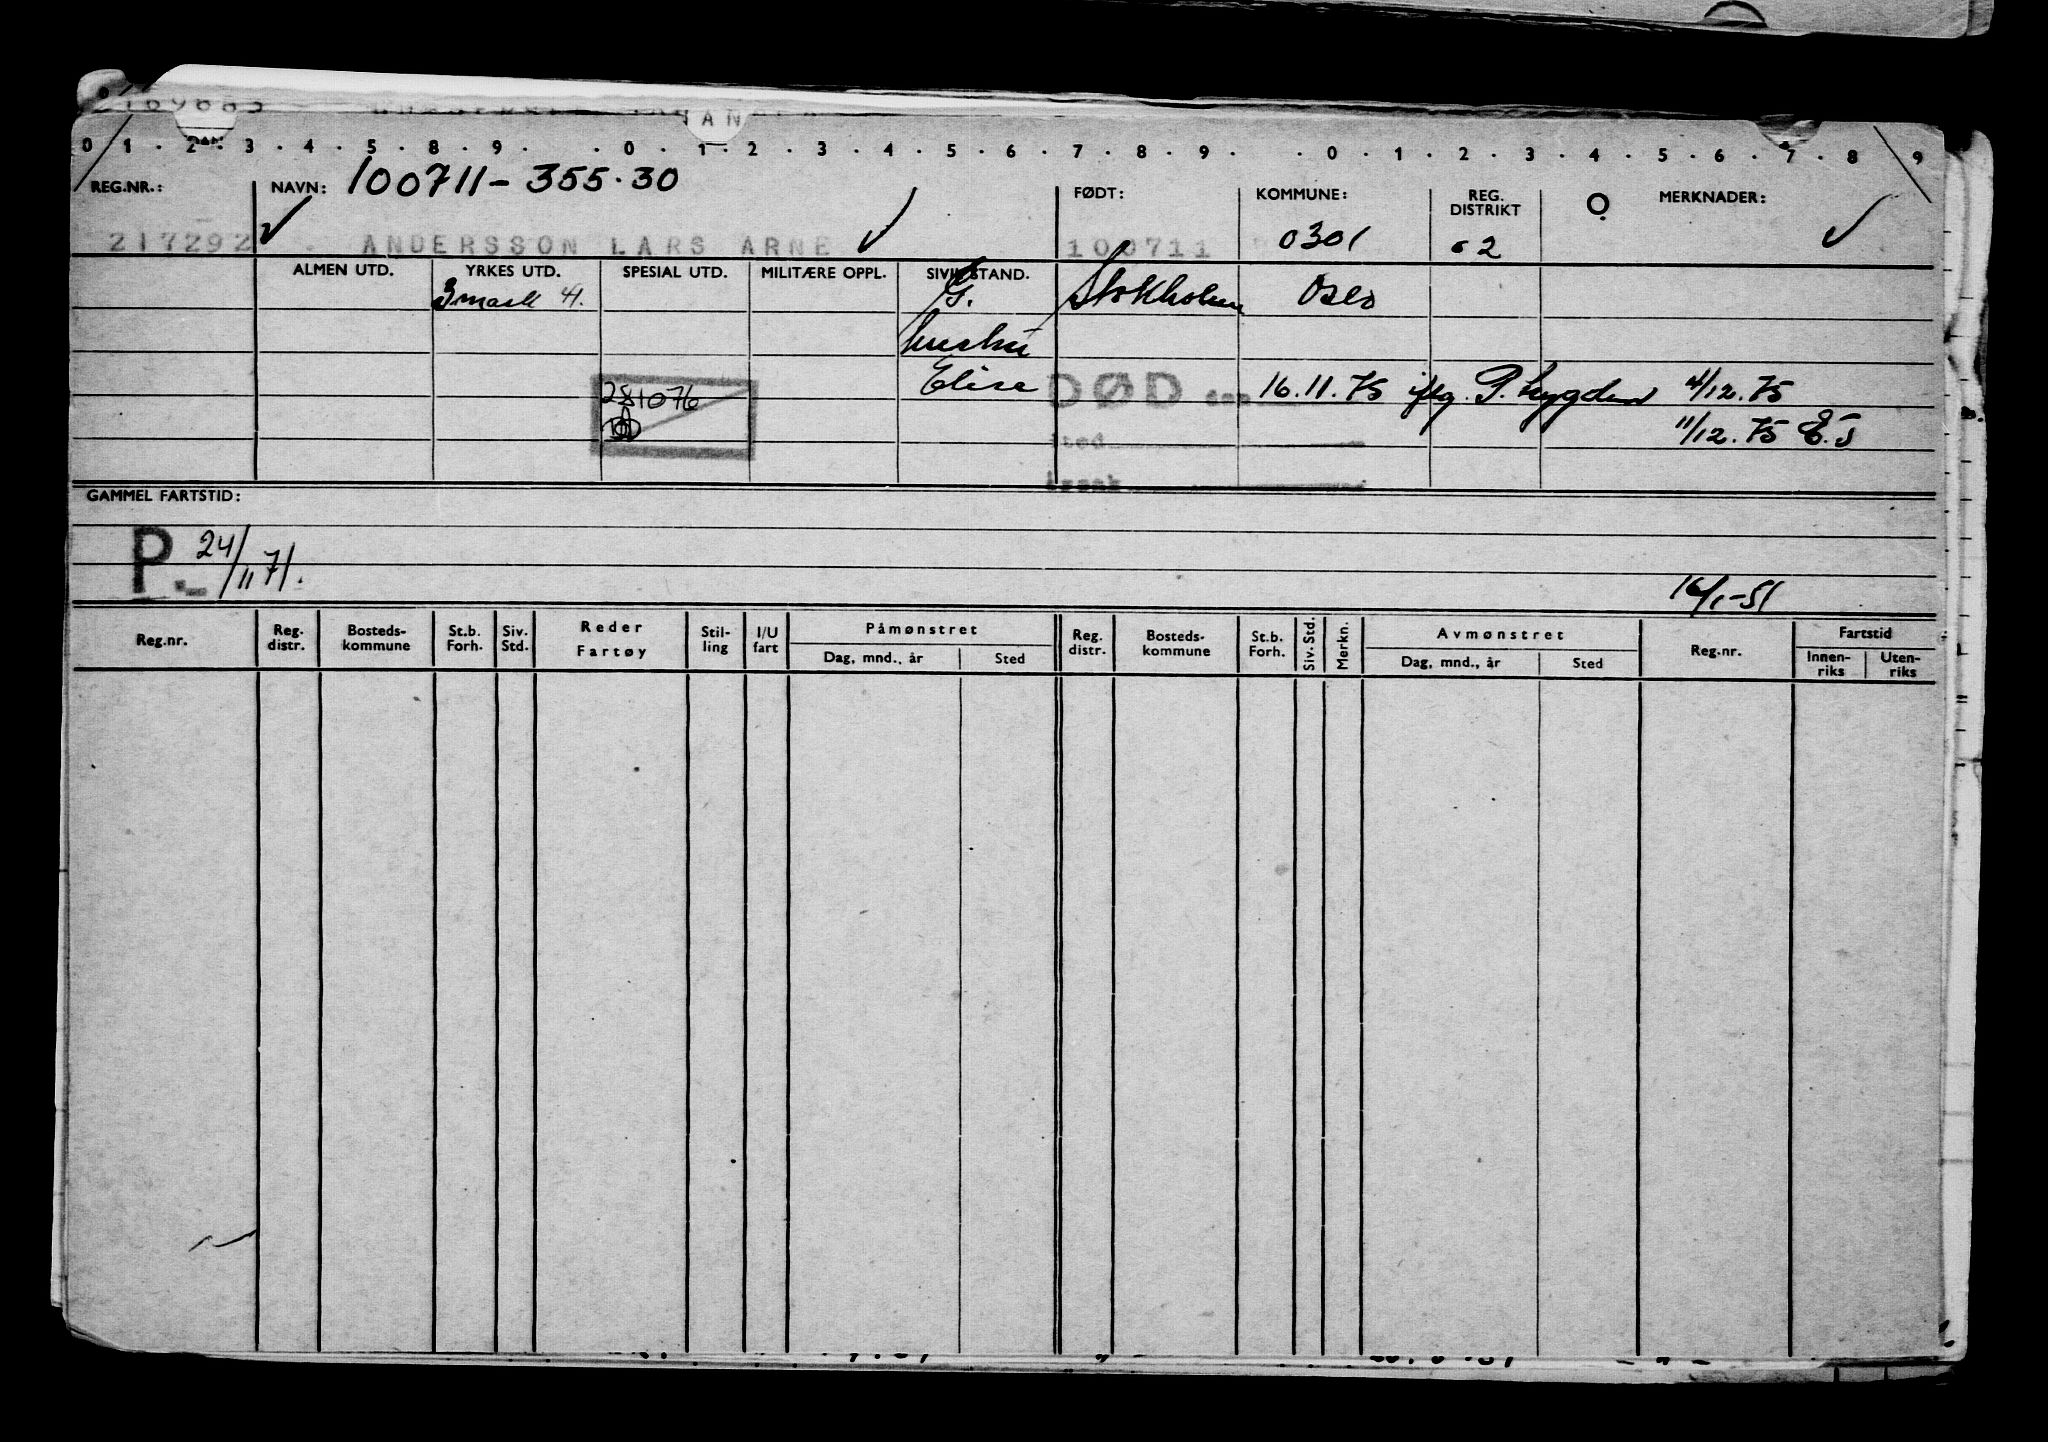 2169683
AN
0 1 . 2 . 3 . 4 . 5 . 8 . 9 . . 0 . 1 . 2 . 3 . 4 . 5 . 6 . 7 . 8 . 9 . . 0 . 1 . 2 . 3 . 4 . 5 . 6 . 7 . 8 9
REG.NR.: NAVN: 100711-355.30 FØDT: KOMMUNE: REG. DISTRIKT O MERKNADER:
217292 ANDERSSON LARS ARNE 100711 0301 02
ALMEN UTD. YRKES UTD. SPESIAL UTD. MILITÆRE OPPL. SIVILSTAND.
3 mask 4. G. Stokholm Oslo
hustru
Elise DØD 16.11.75 iflg. P. 4/12.75
281076
sted 11/12.75
årsak
GAMMEL FARTSTID:
P.- 24/11 71.
16/1-51
Reg.nr. Reg. distr. Bosteds- kommune St.b. Forh. Siv. Std. Reder Fartøy Stil- ling I/U fart Påmønstret Reg. distr. Bosteds- kommune St.b. Forh. Siv. Std. Merkn. Avmønstret Reg.nr. Fartstid
Dag, mnd., år Sted Dag, mnd., år Sted Innen- riks Uten- riks